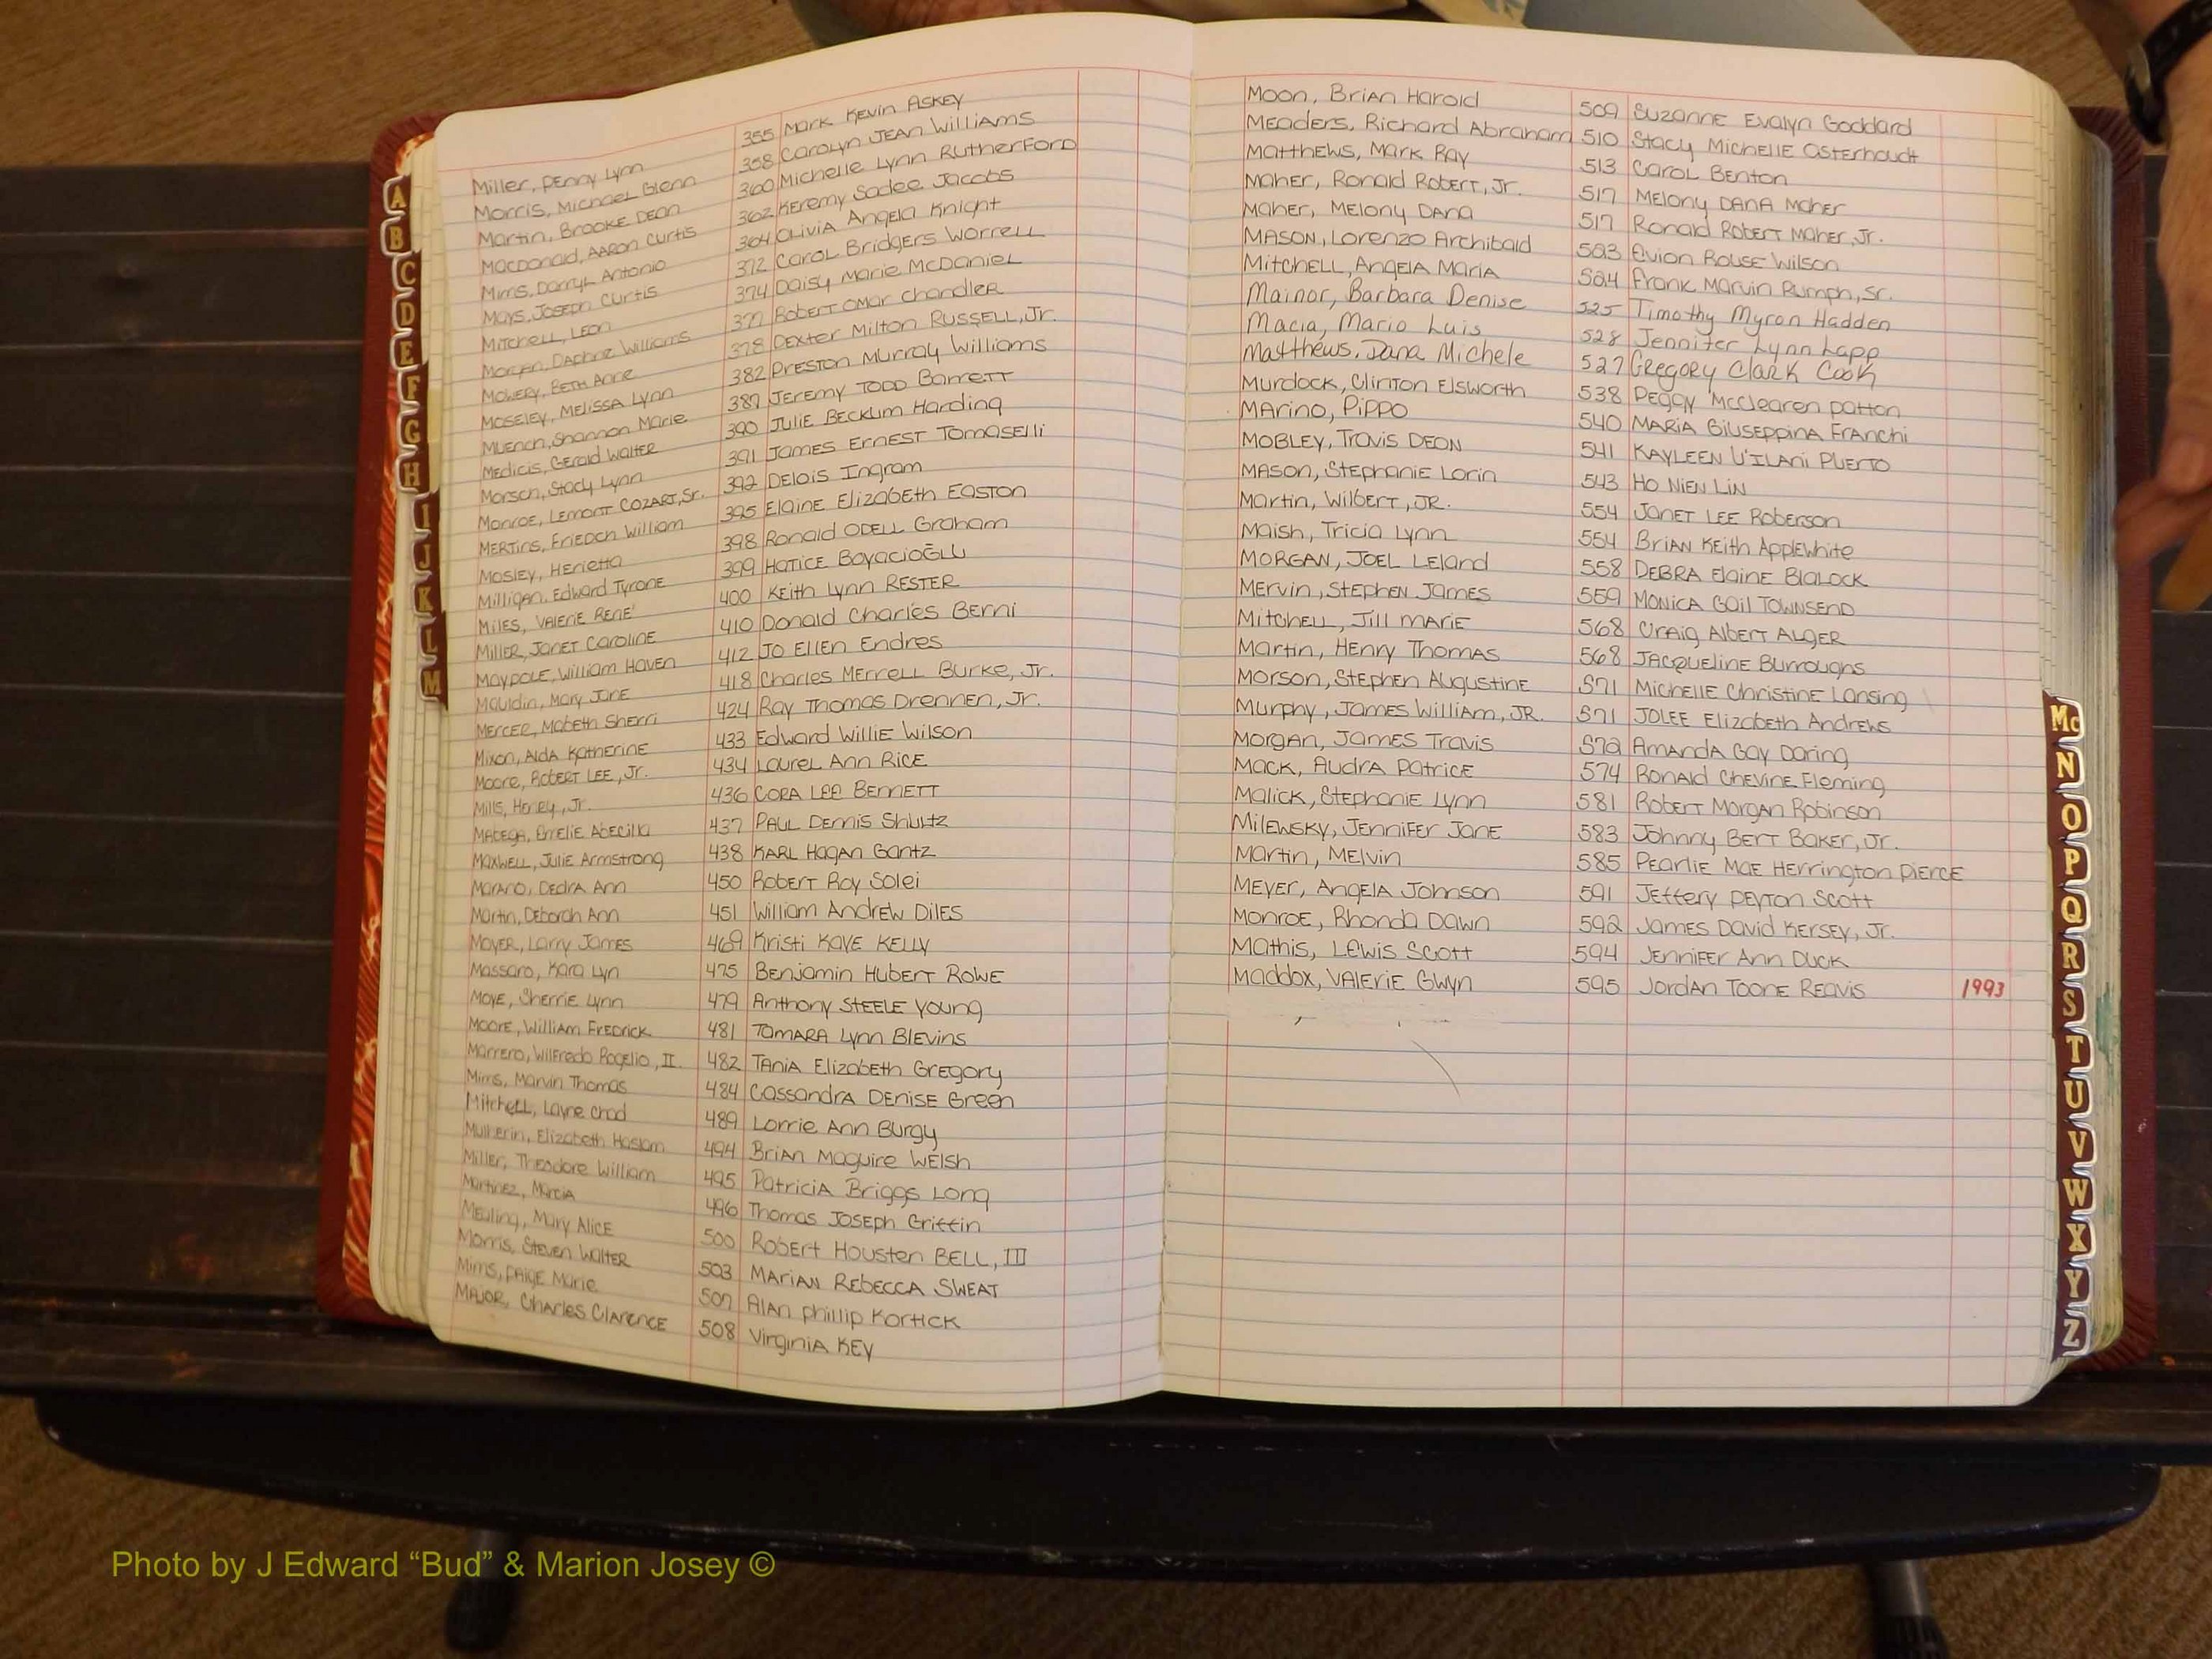 Miller, Penny Lynn 355 Mark Kevin Askey
Morris, Michael Glenn 358 Carolyn Jean Williams
Martin, Brooke Dean 360 Michelle Lynn Rutherford
MacDonald, Aaron Curtis 362 Keremy Sadee Jacobs
Mims, Darryl Antonio 364 Olivia Angela Knight
Mays, Joseph Curtis 372 Carol Bridgers Worrell
Mitchell, Leon 374 Daisy Marie McDaniel
Morgan, Daphne Williams 377 Robert Omar Chandler
Mowery, Beth Anne 378 Dexter Milton Russell, Jr.
Moseley, Melissa Lynn 382 Preston Murray Williams
Muench, Shannon Marie 387 Jeremy Todd Barrett
Medicis, Gerald Walter 390 Julie Becklum Harding
Morsch, Stacy Lynn 391 James Ernest Tomaselli
Monroe, Lemont Cozart, Sr. 392 Delois Ingram
Mertins, Friedch William 395 Elaine Elizabeth Easton
Mosley, Henrietta 398 Ronald Odell Graham
Milligan, Edward Tyrone 399 Hatice Boyacioğlu
Miles, Valerie Rene' 400 Keith Lynn Rester
Miller, Janet Caroline 410 Donald Charles Berni
Maypole, William Haven 412 Jo Ellen Endres
Mauldin, Mary Jane 418 Charles Merrell Burke, Jr.
Mercer, Mabeth Sherri 424 Ray Thomas Drennen, Jr.
Mixon, Alda Katherine 433 Edward Willie Wilson
Moore, Robert Lee, Jr. 434 Laurel Ann Rice
Mills, Henry, Jr. 436 Cora Lee Bennett
Abecilla 437 Paul Dennis Shultz
Maxwell, Julie Armstrong 438 Karl Hagan Gantz
Marano, Dedra Ann 450 Robert Roy Solei
Martin, Deborah Ann 451 William Andrew Diles
Moyer, Larry James 469 Kristi Kaye Kelly
Massaro, Kara Lyn 475 Benjamin Hubert Rowe
Moye, Sherrie Lynn 479 Anthony Steele Young
Moore, William Fredrick 481 Tamara Lynn Blevins
Marrero, Wilfredo Rogelio, II. 482 Tania Elizabeth Gregory
Mims, Marvin Thomas 484 Cassandra Denise Green
Mitchell, Layne Chad 489 Lorrie Ann Burgy
Mulherin, Elizabeth Haslam 494 Brian Maguire Welsh
Miller, Theodore William 495 Patricia Briggs Long
Martinez, Marcia 496 Thomas Joseph Griffin
Meuling, Mary Alice 500 Robert Housten Bell, III
Morris, Steven Walter 503 Marian Rebecca Sweat
Mims, Paige Marie 507 Alan Phillip Kortick
Major, Charles Clarence 508 Virginia Key
Moon, Brian Harold 509 Suzanne Evalyn Goddard
Meaders, Richard Abraham 510 Stacy Michelle Osterhoudt
Matthews, Mark Ray 513 Carol Benton
Maher, Ronald Robert, Jr. 517 Melony Dana Maher
Maher, Melony Dana 517 Ronald Robert Maher, Jr.
Mason, Lorenzo Archibald 523 Evion Rouse Wilson
Mitchell, Angela Maria 524 Frank Marvin Rumph, Sr.
Mainor, Barbara Denise 525 Timothy Myron Hadden
Macia, Mario Luis 528 Jennifer Lynn Lapp
Matthews, Dana Michele 527 Gregory Clark Cook
Murdock, Clinton Elsworth 538 Peggy McClearen Patton
Marino, Pippo 540 Maria Giuseppina Franchi
Mobley, Travis Deon 541 Kayleen U'ilani Puerto
Mason, Stephanie Lorin 543 Ho Nien Lin
Martin, Wilbert, Jr. 554 Janet Lee Roberson
Maish, Tricia Lynn 554 Brian Keith Applewhite
Morgan, Joel Leland 558 Debra Elaine Blalock
Mervin, Stephen James 559 Monica Gail Townsend
Mitchell, Jill Marie 568 Craig Albert Alger
Martin, Henry Thomas 568 Jacqueline Burroughs
Morson, Stephen Augustine 571 Michelle Christine Lansing
Murphy, James William, Jr. 571 Jolee Elizabeth Andrews
Morgan, James Travis 572 Amanda Gay Daring
Mack, Audra Patrice 574 Ronald Chevine Fleming
Malick, Stephanie Lynn 581 Robert Morgan Robinson
Milewsky, Jennifer Jane 583 Johnny Bert Baker, Jr.
Martin, Melvin 585 Pearlie Mae Herrington Pierce
Meyer, Angela Johnson 591 Jeffery Peyton Scott
Monroe, Rhonda Dawn 592 James David Kersey, Jr.
Mathis, Lewis Scott 594 Jennifer Ann Duck
Maddox, Valerie Gwyn 595 Jordan Toone Reavis 1993
A
B
C
D
E
F
G
H
I
J
K
L
M
Mc
N
O
P
Q
R
S
T
U
V
W
X
Y
Z
Photo by J Edward “Bud” & Marion Josey ©